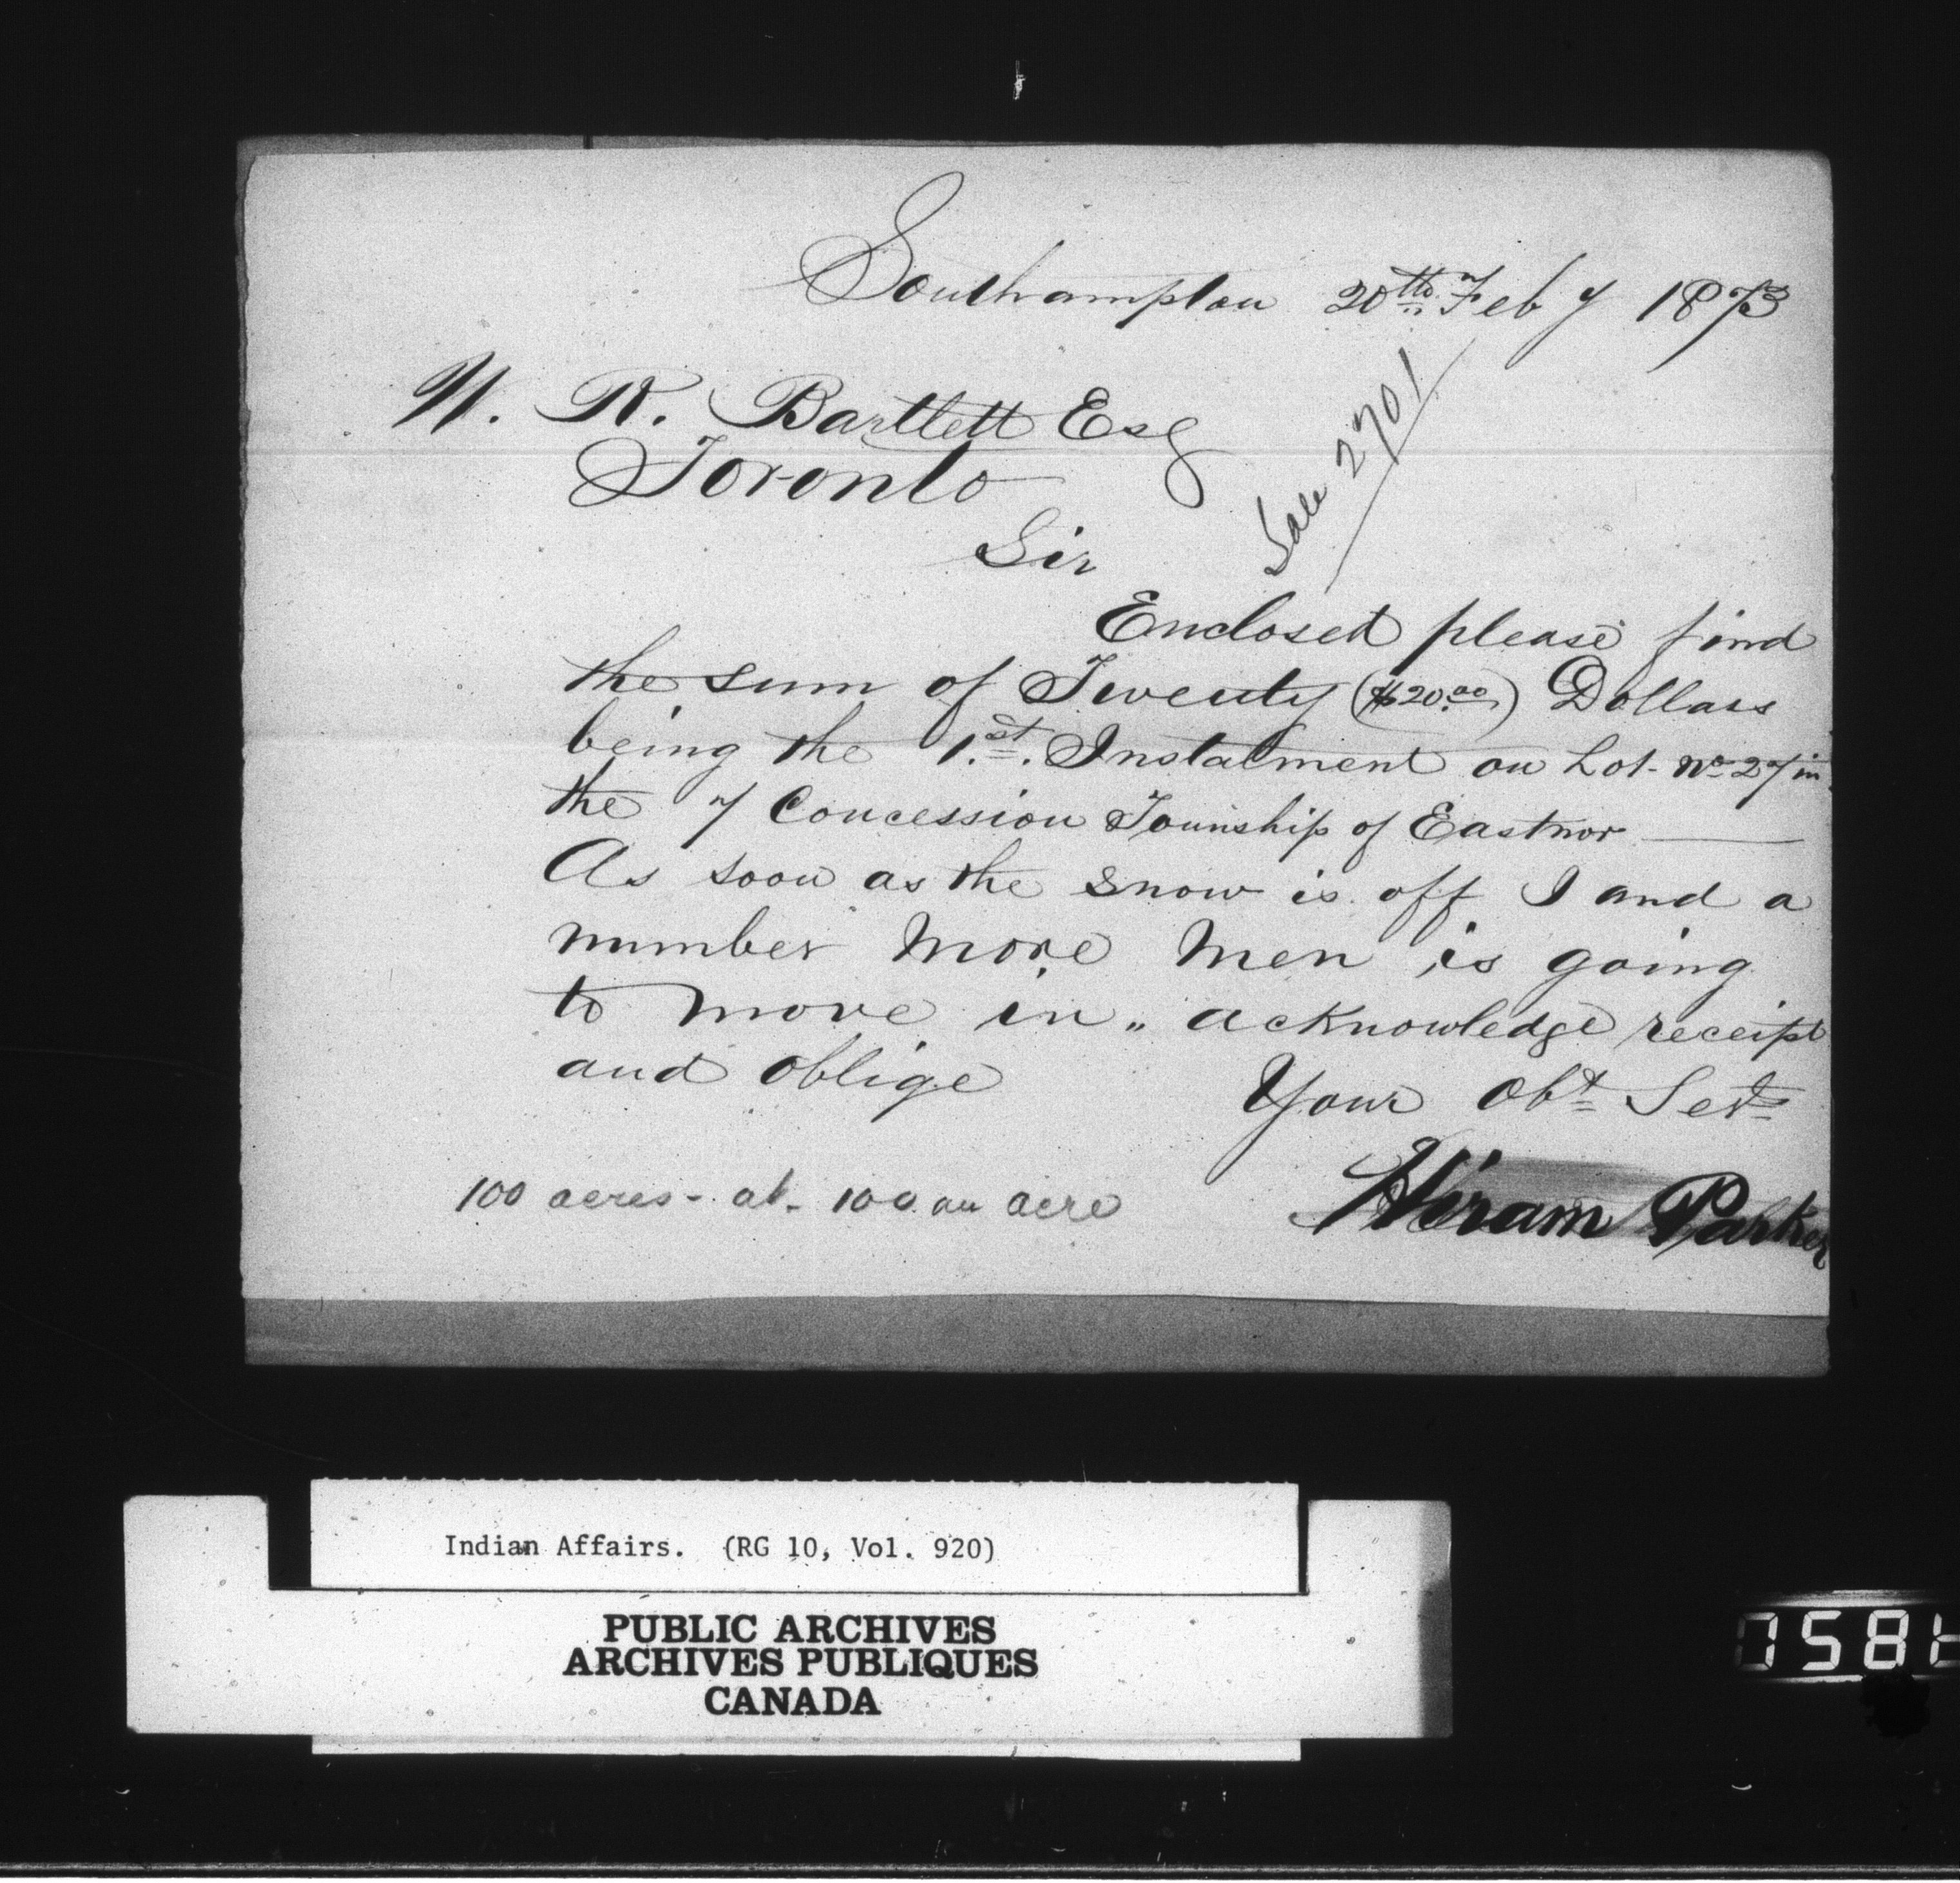 Southampton 20th Feby 1873
W. R. Bartlett Esq
Toronto
Sale 2701
Sir
Enclosed please find
the sum of Twenty ($20.00) Dollars
being the 1.st. Instalment on Lot No 27 in
the 7 Concession Township of Eastnor
As soon as the snow is off I and a
number more men is going
to move in „ acknowledge receipt
and oblige
Your Obt Sevt
Hiram Parker
100 acres - at - 100 an acre
Indian Affairs. (RG 10, Vol. 920)
PUBLIC ARCHIVES
ARCHIVES PUBLIQUES
CANADA